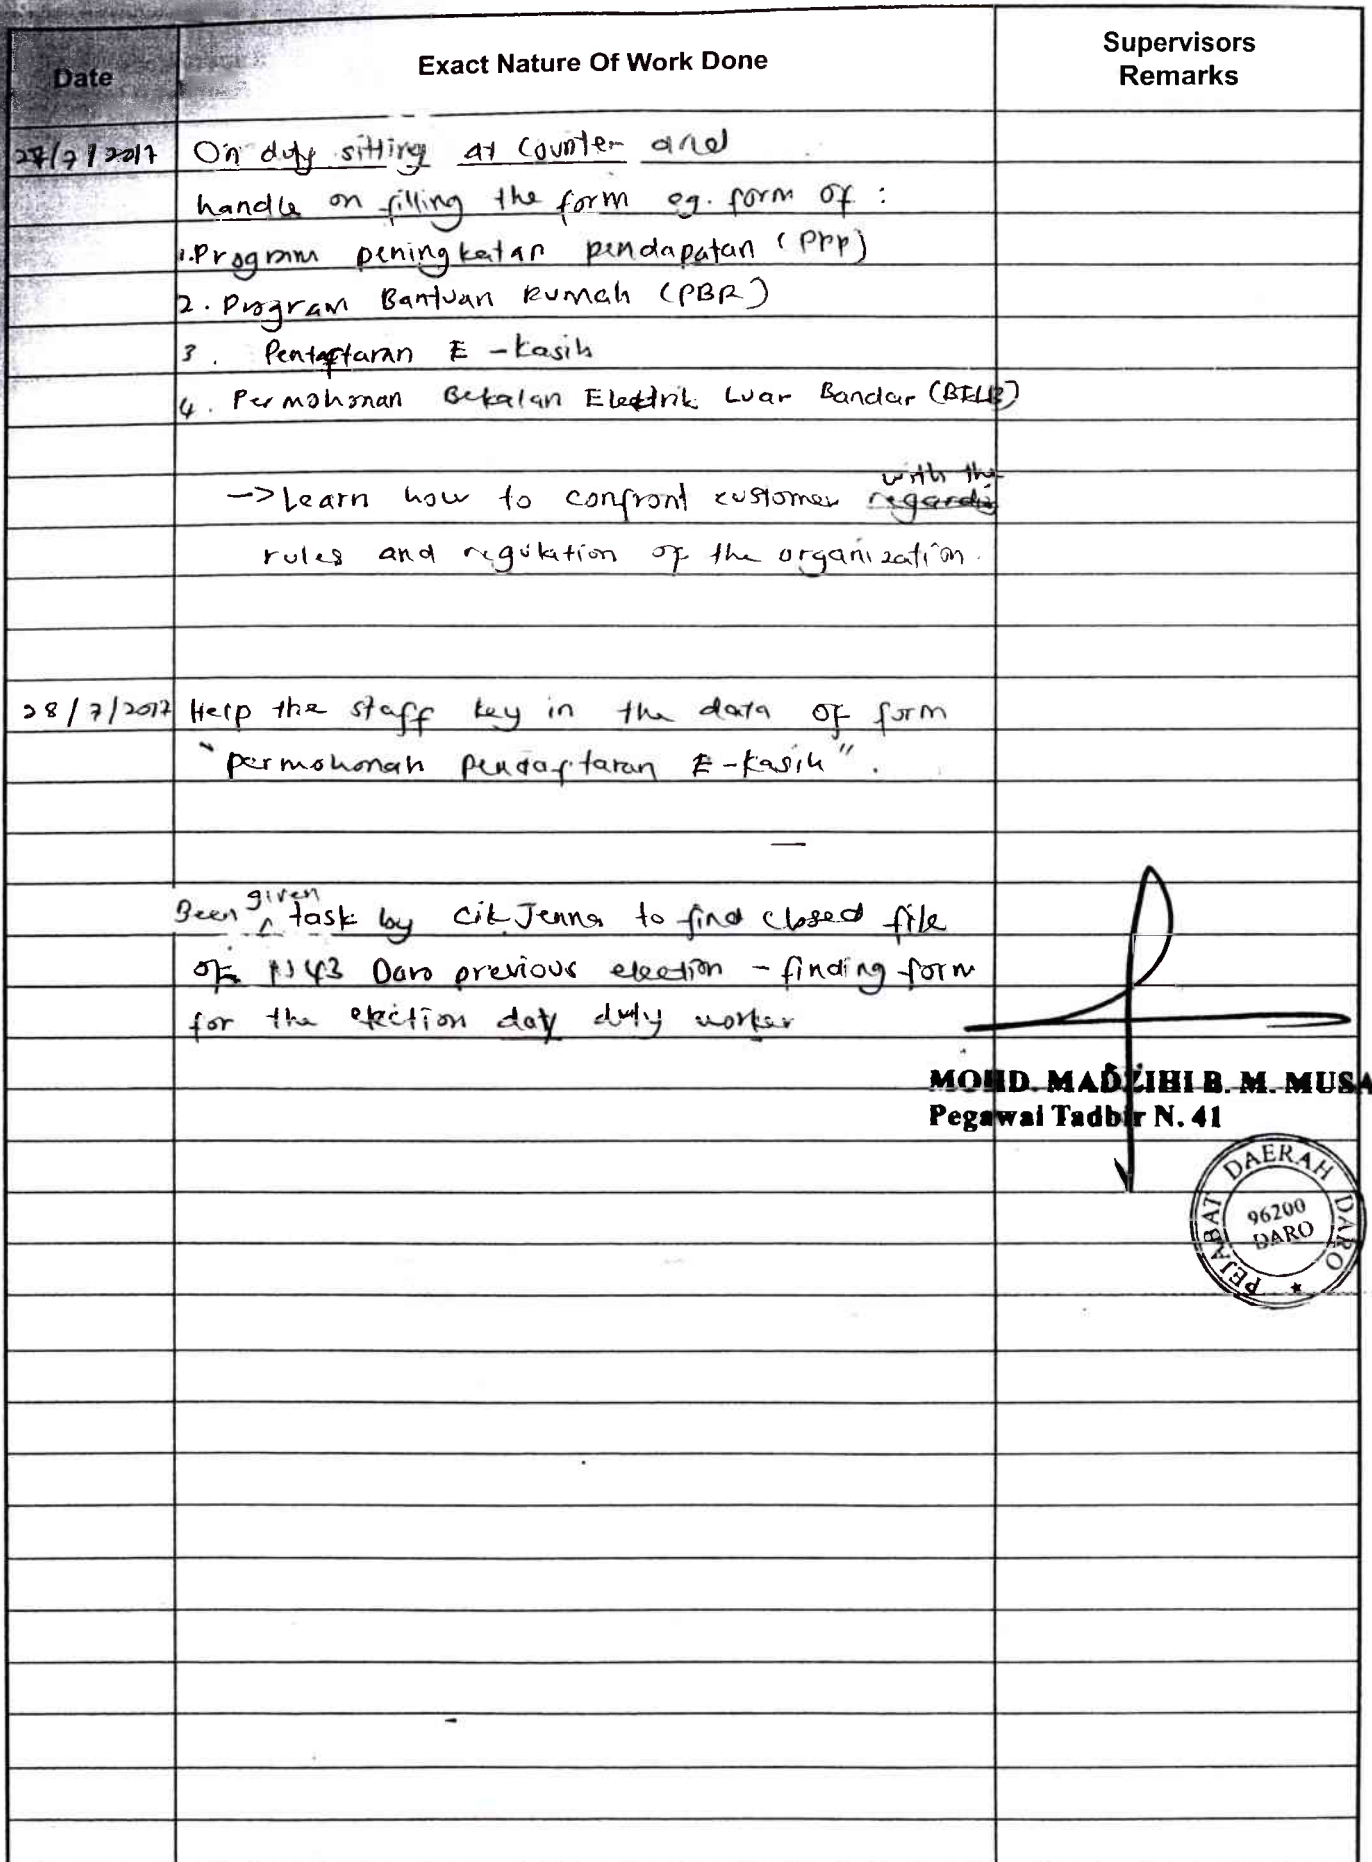 Date
Exact Nature Of Work Done
Supervisors
Remarks
27/7/2017 On duty sitting at counter and
handle on filling the form eg. form of :
1.Program peningkatan pendapatan (PPP)
2. Program Bantuan Rumah (PBR)
3. Pentaftaran E -kasih
4. Permohonan Bekalan Elektrik Luar Bandar (BELB)
with the
-> Learn how to confront customer regarding
rules and regulation of the organization.
28/7/2017 Help the staff key in the data of form
"permohonan pendaftaran E-kasih".
given
Been ^ task by Cik Jenna to find closed file
of N43 Daro previous election - finding form
for the election day duty worker
MOHD. MADZIHI B. M. MUSA
Pegawai Tadbir N. 41
PEJABAT DAERAH DARO
96200
DARO